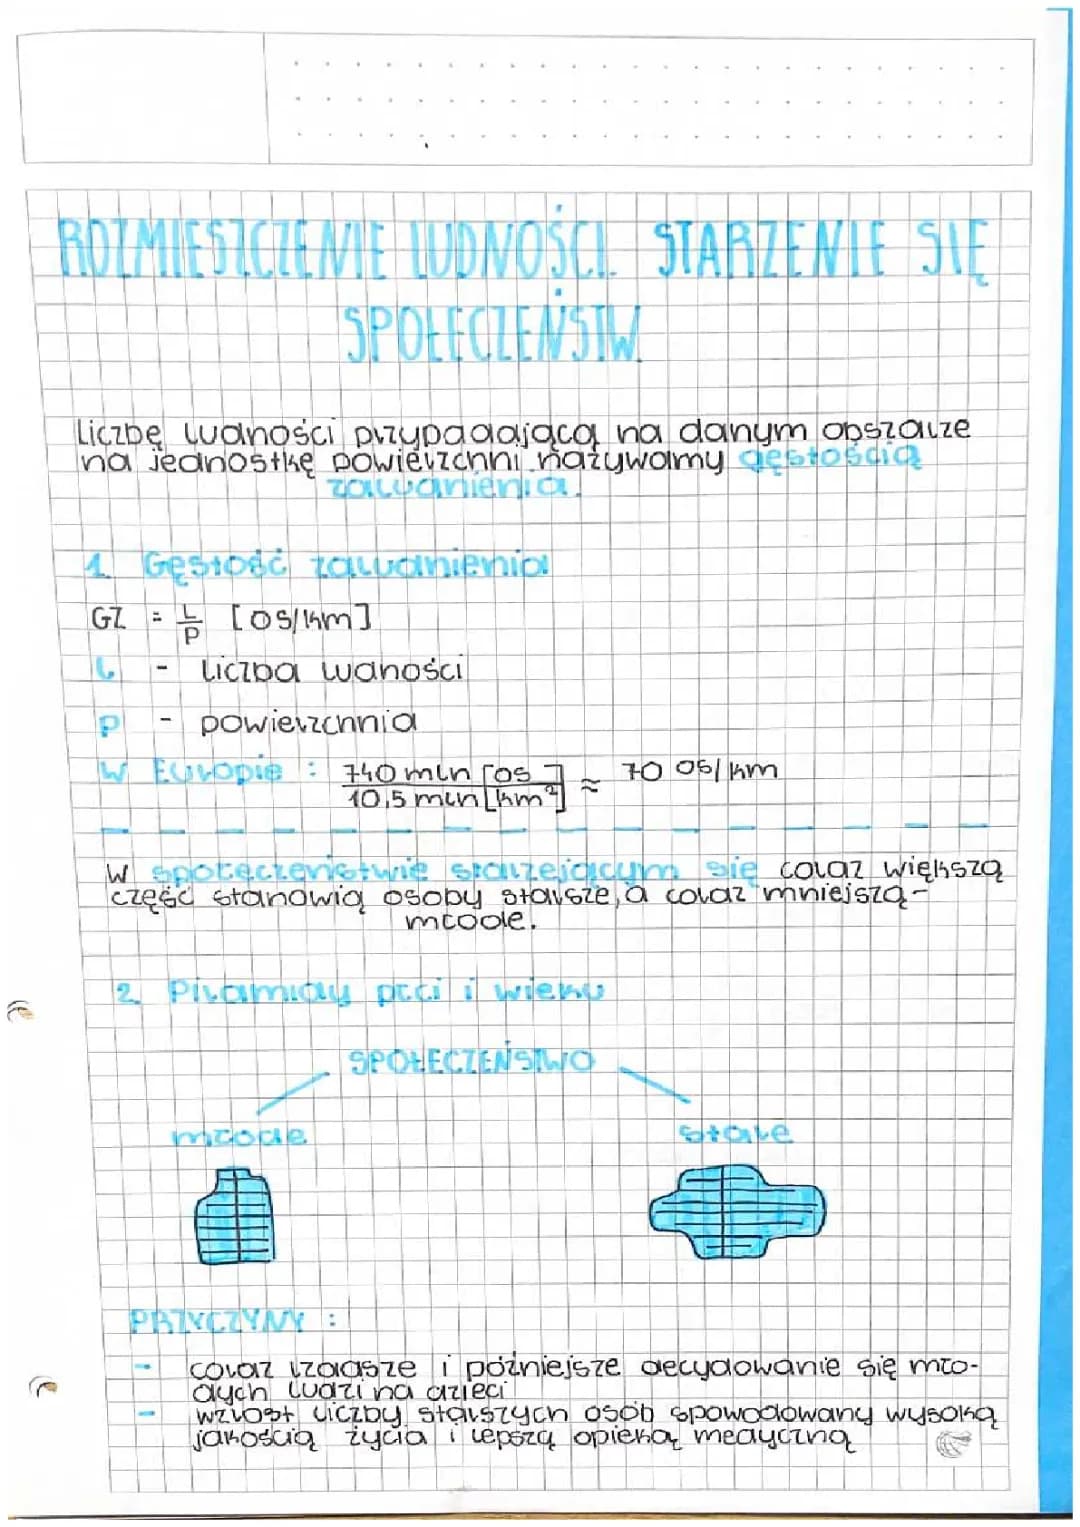 ROZMIESZCZENIE LUDNOŚCI. STARZENIE SIĘ
SPOŁECZEŃSTW
Liczbę ludności przypadającą na danym obszarze
na jednostkę powierzchni nazywamy gęstością
zaludnienia.
1. Gęstość zaludnienia
GZ = L/P [os/km]
L - liczba ludności
P - powierzchnia
W Europie : 740 mln [os] / 10,5 mln [km²] ≈ 70 os/km
W społeczeństwie starzejącym się coraz większą
część stanowią osoby starsze, a coraz mniejszą -
młode.
2. Piramidy płci i wieku
SPOŁECZEŃSTWO
młode stare
PRZYCZYNY :
- coraz rzadsze i późniejsze decydowanie się mło-
dych ludzi na dzieci
- wzrost liczby starszych osób spowodowany wysoką
jakością życia i lepszą opieką medyczną